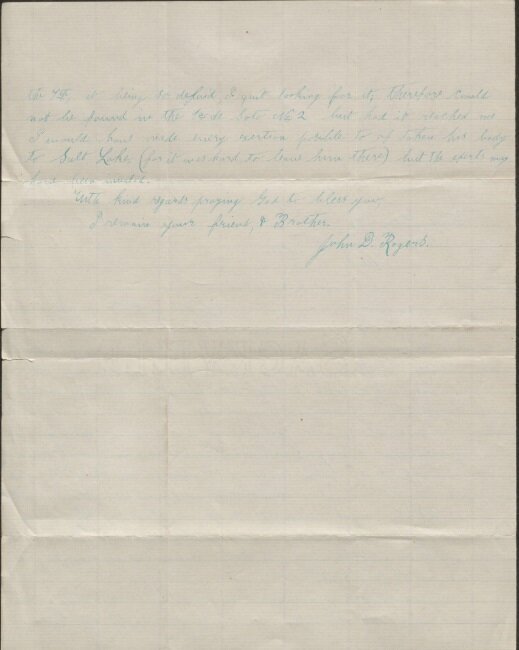 it being so defered, I quit looking for it, therefore could
not be found in the No 2 but had it reached me
I would have made every exertion posible to of taken his body
to Salt Lake (for it was hard to leave him there) but the
have been
With kind regards praying God to bless you
I remain your friend, & Brother.
John D. Rogers.